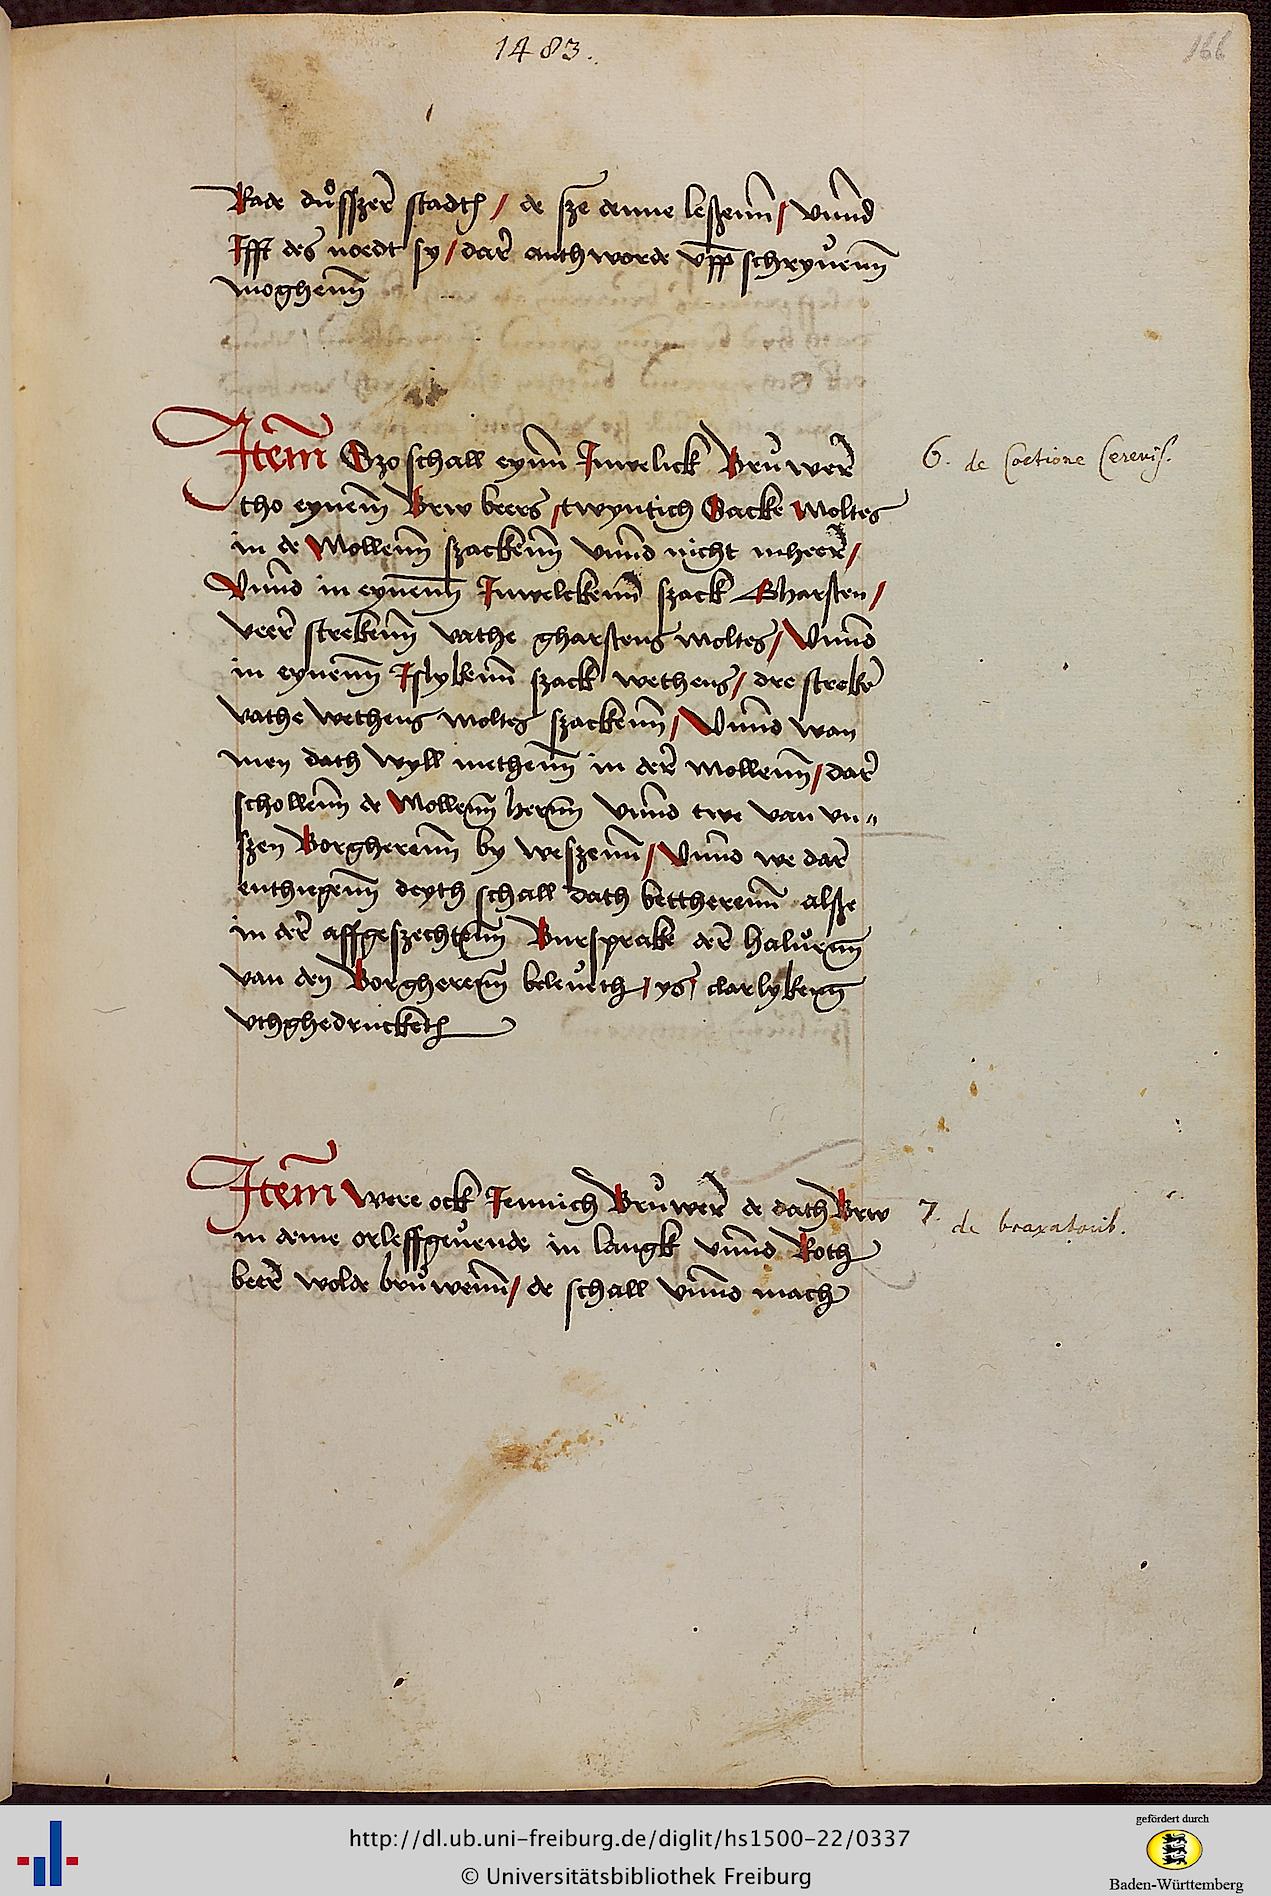 1483.
166
Rade dußzer stadth / de sze denne leßenn / vnnd
Ifft des noedt sy / dar anthworde vpp schryuenn
moghenn
Item Szo schall eynn Iuwelick Bruwer
6. de Coctione Cerevis.
tho eynem Brw beers / twyntich Sacke Moltes
in de Mollenn szackenn vnnd nicht mheer /
Vnnd in eynenn Iuwelckenn szack Gharsten /
veer strekenn vathe gharstens moltes / Vnnd
in eynenn Islykenn szack wethens / dre streke
vathe wethens moltes szackenn / Vnnd wan
men dath wyll methenn in der mollenn / dar
schollenn de Mollenn hernn vnnd twe van vn„
szen Borgherenn by weszenn / Vnnd we dar
enthiegenn deyth schall dath bettherenn alße
in der affgeszechtenn Bursprake der haluenn
van den Borgherenn beleueth / ys / clarlykenn
vthghedrucketh
Item Were ock Jennich Bruwer de dath Brw
7. de braxatorib.
in deme orleffgeuende in langk vnnd Roth
beer wolde bruwenn / de schall vnnd mach
http://dl.ub.uni-freiburg.de/diglit/hs1500-22/0337
© Universitätsbibliothek Freiburg
gefördert durch
Baden-Württemberg